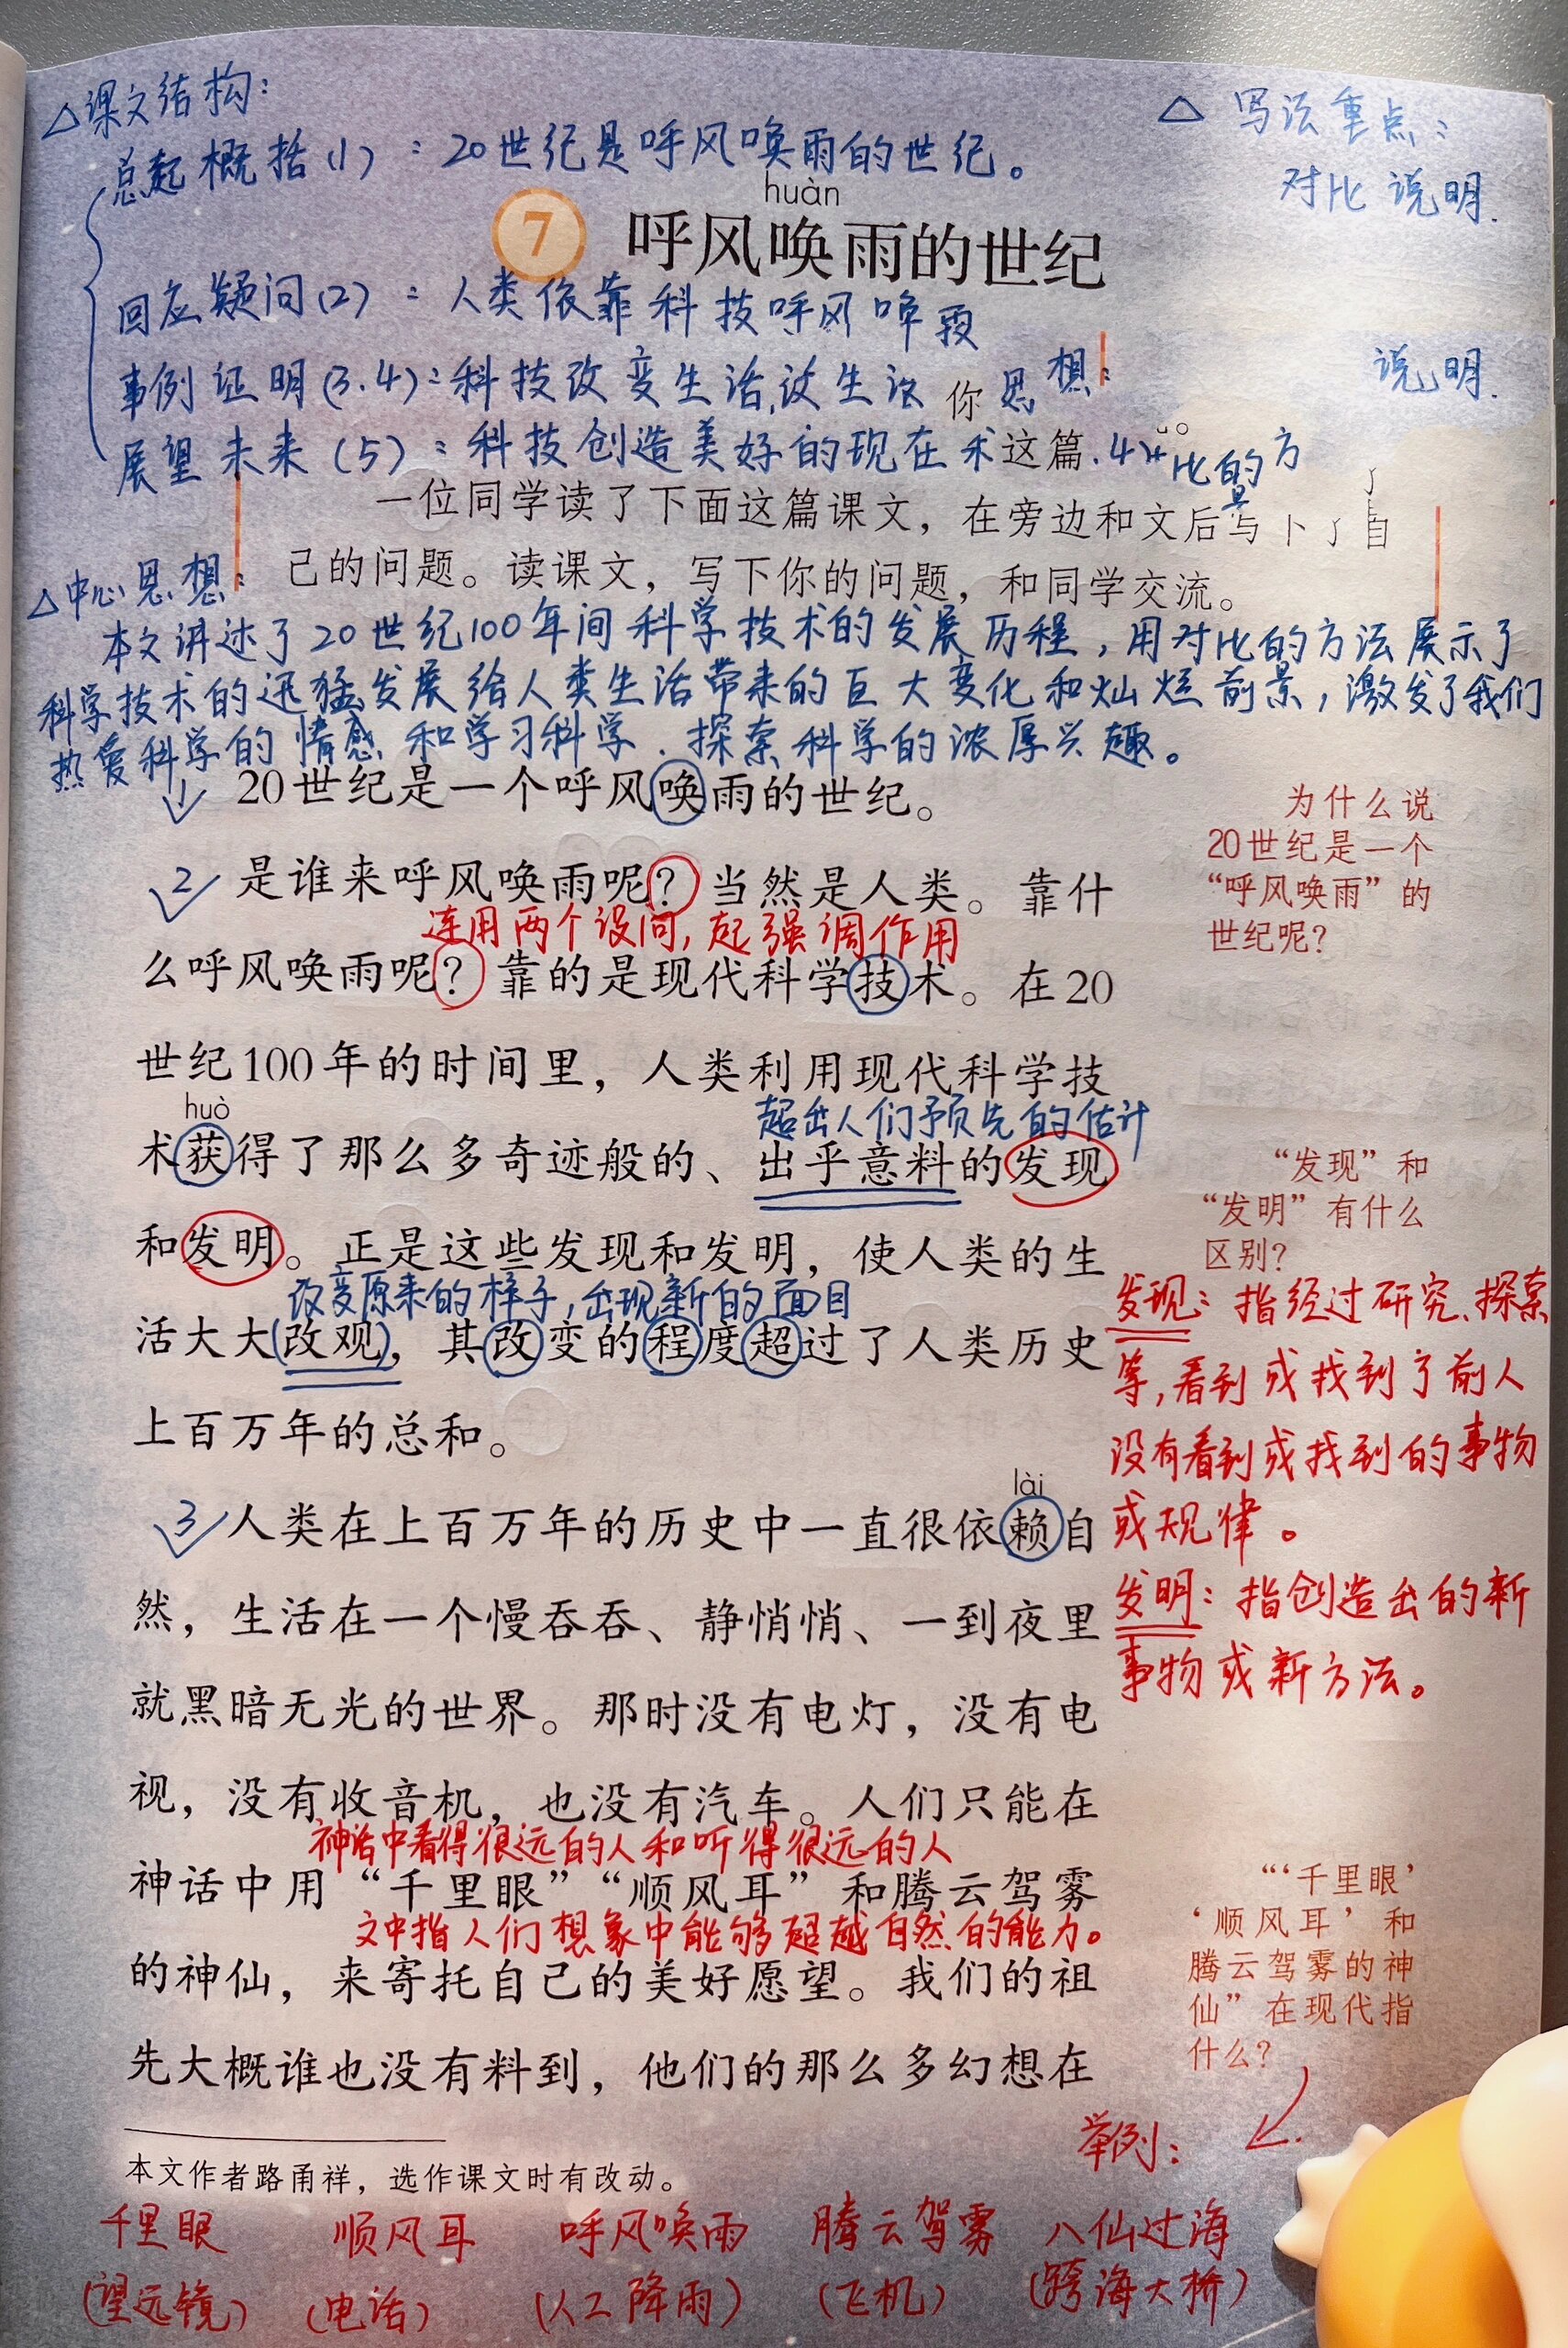 △课文结构：
总起概括(1)：20世纪是呼风唤雨的世纪。
△ 写法重点：
对比说明.
huàn
7 呼风唤雨的世纪
回应疑问(2)：人类依靠科技呼风
事例证明(3.4)：科技改变生活,
你思想：
说明.
展望未来(5)：科技创造美好的现在
这篇.
比的方
一位同学读了下面这篇课文，在旁边和文后写下了自
己的问题。读课文，写下你的问题，和同学交流。
△中心思想：
本文讲述了20世纪100年间科学技术的发展历程，用对比的方法展示了
科学技术的迅猛发展给人类生活带来的巨大变化和灿烂前景，激发了我们
热爱科学的情感和学习科学.探索科学的浓厚兴趣。
1 20世纪是一个呼风唤雨的世纪。
为什么说
20世纪是一个
“呼风唤雨”的
世纪呢？
2 是谁来呼风唤雨呢？当然是人类。靠什
连用两个设问,起强调作用
么呼风唤雨呢？靠的是现代科学技术。在20
世纪100年的时间里，人类利用现代科学技
huò
超出人们预先的估计
术获得了那么多奇迹般的、出乎意料的发现
“发现”和
“发明”有什么
区别？
和发明。正是这些发现和发明，使人类的生
改变原来的样子,出现新的面目
活大大(改观)，其改变的程度超过了人类历史
上百万年的总和。
发现：指经过研究、探索
等,看到或找到了前人
没有看到或找到的事物
或规律。
发明：指创造出的新
事物或新方法。
lài
3 人类在上百万年的历史中一直很依赖自
然，生活在一个慢吞吞、静悄悄、一到夜里
就黑暗无光的世界。那时没有电灯，没有电
视，没有收音机，也没有汽车。人们只能在
神话中看得很远的人和听得很远的人
神话中用“千里眼”“顺风耳”和腾云驾雾
文中指人们想象中能够超越自然的能力。
的神仙，来寄托自己的美好愿望。我们的祖
先大概谁也没有料到，他们的那么多幻想在
“‘千里眼’
‘顺风耳’和
腾云驾雾的神
仙”在现代指
什么？
举例：
本文作者路甬祥，选作课文时有改动。
千里眼 顺风耳 呼风唤雨 腾云驾雾 八仙过海
(望远镜) (电话) (人工降雨) (飞机) (跨海大桥)